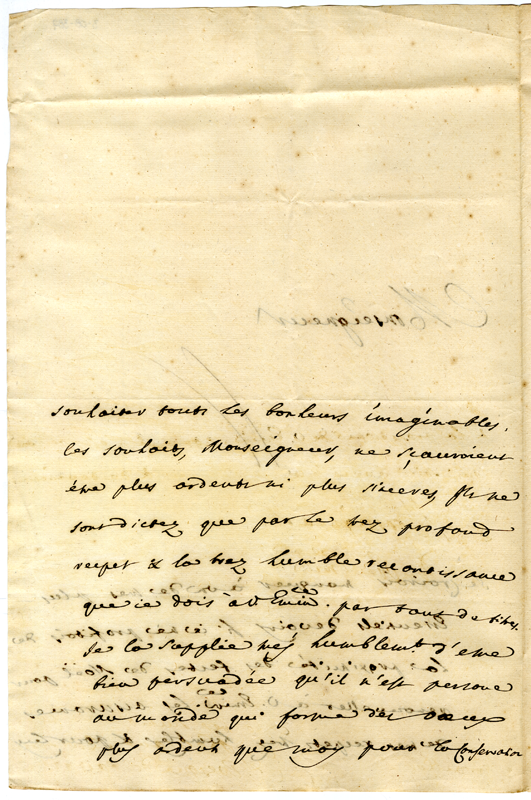 souhaiter touts les bonheurs imáginables,
les souhaits, Monseigneur, ne sçauroient
étre plus ardents ni plus sinceres, et ne
sont dictez que par le trez profond
respet & la trez humble reconissance
que ie dois à V Emin.ce par tant de titres
Je la supplie trés humblemt d'etre
bien persuadée qu'il n'est persone
au monde qui forme des vœux
plus ardent que moy pour la Conservation